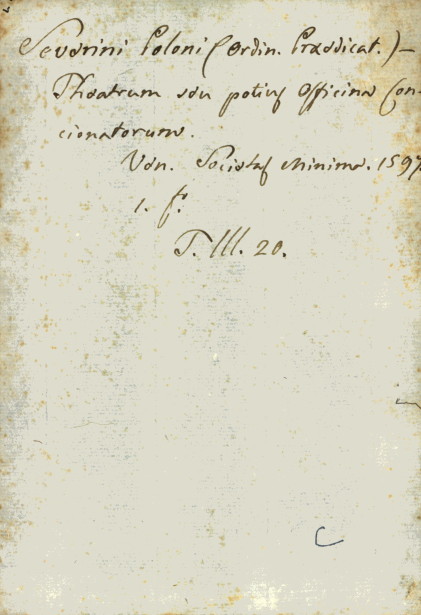 Severini Poloni (Ordin. Praedicat.) –
Theatrum seu potius Officina Con-
cionatorum.
Ven. Societas Minima. 1597.
1. f°.
T. III. 20.
C